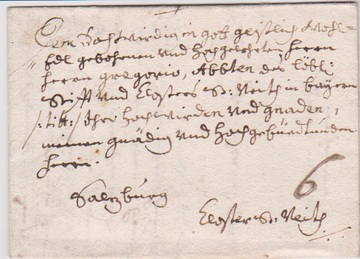 Dem Hochwürdig in gott geistlich Wohl-
Edel gebohrnen und Hochgelehrten Herrn
Herrn Gregorio, Abbten des löbl:
Stifft und Closters St: Veith in bayern
/:titt:/ Ihro Hochwürden und gnaden,
meinem gnädig und Hochgebiettunden
Herrn.
Saltzburg
6
Closter St: Veith